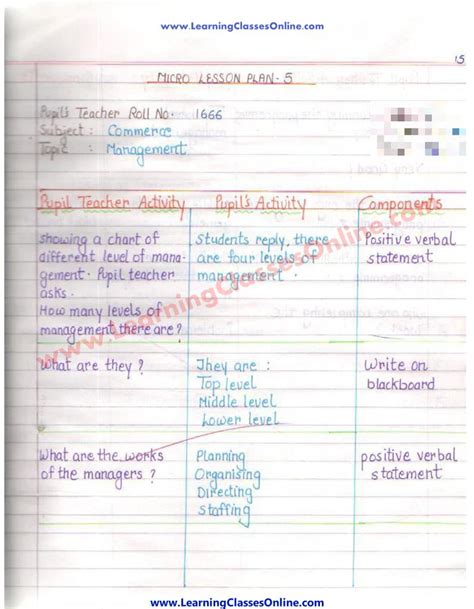 www.LearningClassesOnline.com
15
MICRO LESSON PLAN - 5
Pupil's Teacher Roll No: 1666
Subject : Commerce
Topic : Management
Pupil Teacher Activity
Pupil's Activity
Components
showing a chart of
different level of mana-
gement. Pupil teacher
asks.
How many levels of
management there are?
Students reply, there
are four levels of
management.
Positive verbal
statement
What are they ?
They are :
Top level
Middle level
Lower level
Write on
blackboard
What are the works
of the managers ?
Planning
Organising
Directing
Staffing
positive verbal
statement
www.LearningClassesOnline.com
www.LearningClassesOnline.com